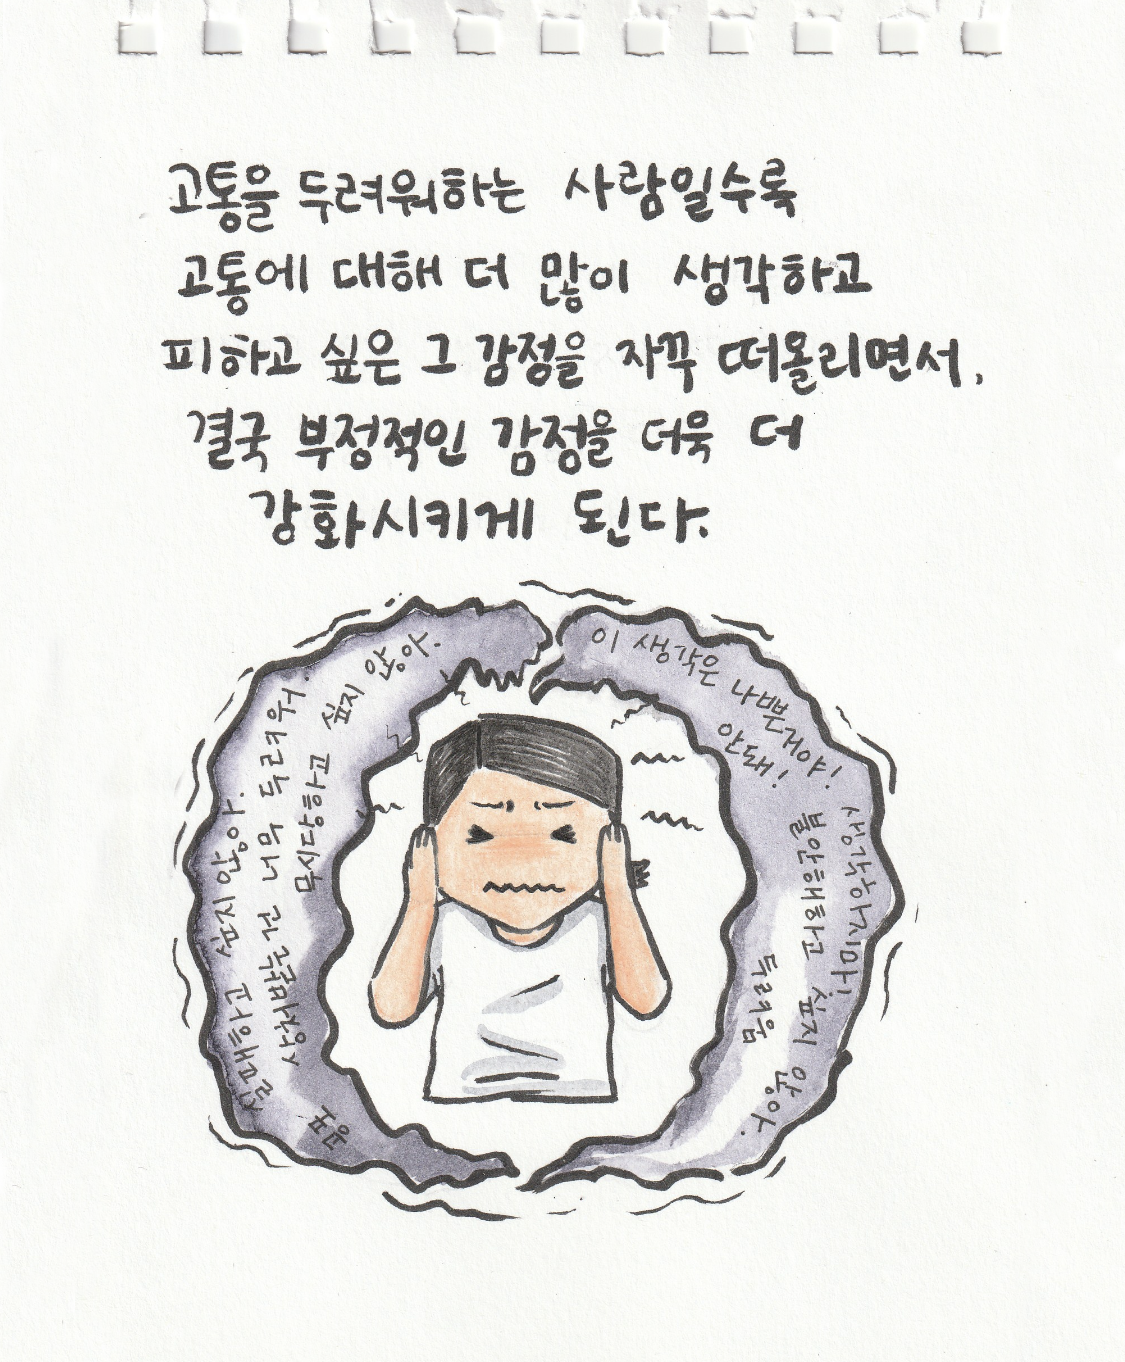 고통을 두려워하는 사람일수록
고통에 대해 더 많이 생각하고
피하고 싶은 그 감정을 자꾸 떠올리면서,
결국 부정적인 감정을 더욱 더
강화시키게 된다.
실패하고 싶지 않아.
난 너무 두려워.
무시당하고 싶지 않아.
공포
이 생각은 나쁜거야!
안돼!
생각하지마!
불안해하고 싶지 않아.
두려움